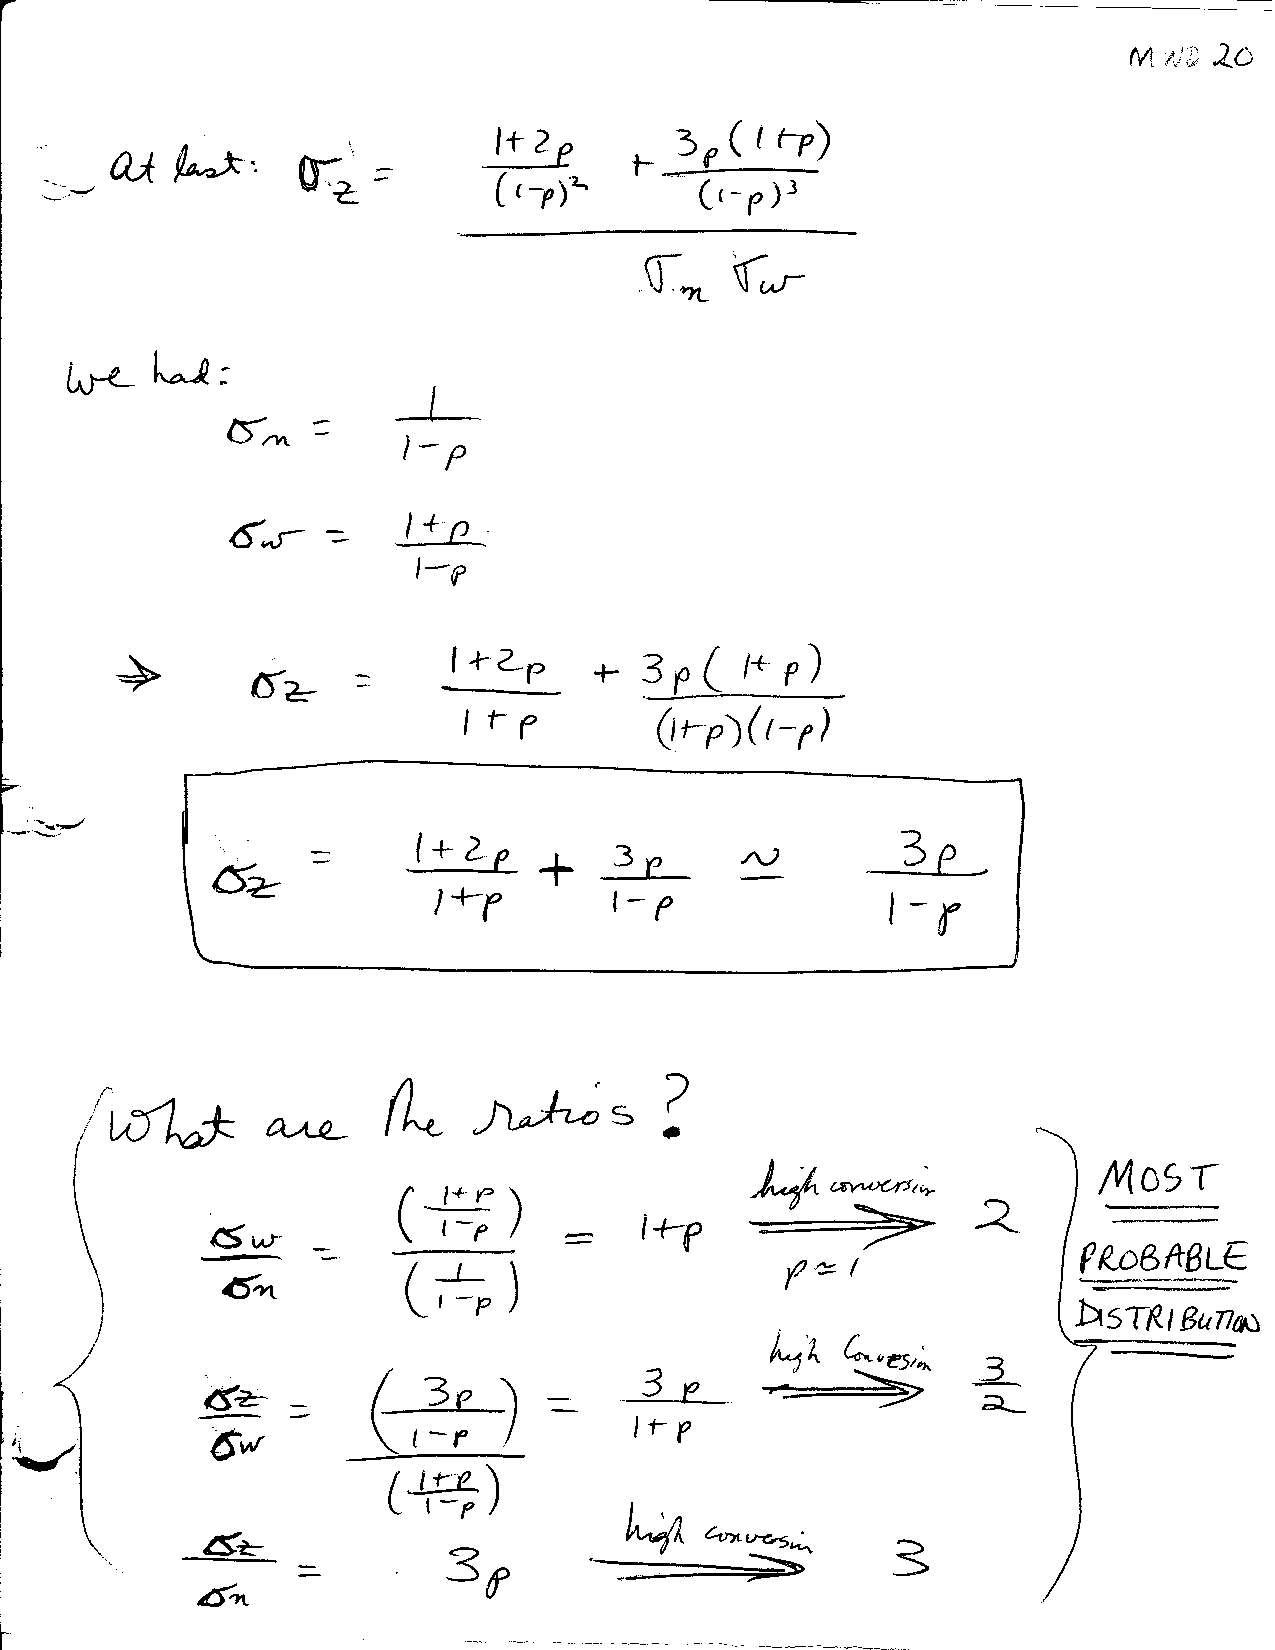 MND 20
At last: σz = ((1+2p)/(1-p)² + 3p(1+p)/(1-p)³) / (σn σw)
We had:
σn = 1/(1-p)
σw = (1+p)/(1-p)
⇒ σz = (1+2p)/(1+p) + 3p(1+p)/((1+p)(1-p))
σz = (1+2p)/(1+p) + 3p/(1-p) ≃ 3p/(1-p)
What are the ratios?
σw/σn = ((1+p)/(1-p))/(1/(1-p)) = 1+p high conversion ⇒ p≃1 2
σz/σw = (3p/(1-p))/((1+p)/(1-p)) = 3p/(1+p) high Conversion ⇒ 3/2
σz/σn = 3p high conversion ⇒ 3
MOST
PROBABLE
DISTRIBUTION